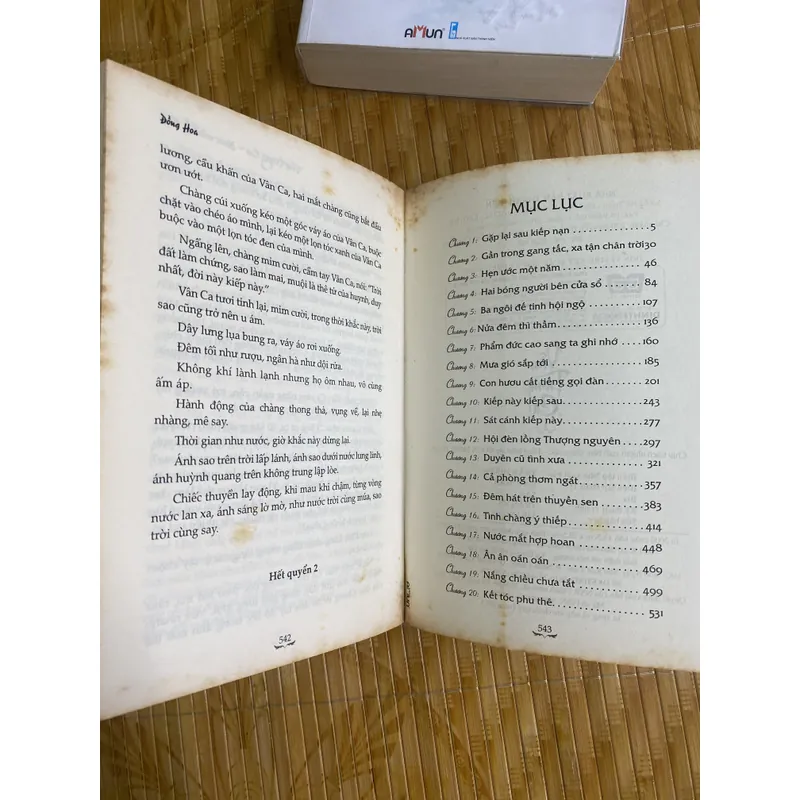 AMUN
Đồng Hoa
lương, cầu khẩn của Vân Ca, hai mắt chàng cũng bắt đầu
ươn ướt.
Chàng cúi xuống kéo một góc váy áo của Vân Ca, buộc
chặt vào chéo áo mình, lại kéo một lọn tóc xanh của Vân Ca
buộc vào một lọn tóc đen của mình.
Ngẩng lên, chàng mỉm cười, cầm tay Vân Ca, nói: "Trời
đất làm chứng, sao làm mai, muội là thê tử của huynh, duy
nhất, đời này kiếp này."
Vân Ca tươi tỉnh lại, mỉm cười, trong thời khắc này, trời
sao cũng trở nên u ám.
Dây lưng lụa bung ra, váy áo rơi xuống.
Đêm tối như rượu, ngân hà như dội rửa.
Không khí lành lạnh nhưng họ ôm nhau, vô cùng
ấm áp.
Hành động của chàng thong thả, vụng về, lại nhẹ
nhàng, mê say.
Thời gian như nước, giờ khắc này dừng lại.
Ánh sao trên trời lấp lánh, ánh sao dưới nước lung linh,
ánh huỳnh quang trên không trung lập lòe.
Chiếc thuyền lay động, khi mau khi chậm, từng vòng
nước lan xa, ánh sáng lờ mờ, như nước trời cùng múa, sao
trời cùng say.
Hết quyển 2
542
MỤC LỤC
Chương 1: Gặp lại sau kiếp nạn . . . . . . . . . . . . . . . . . 5
Chương 2: Gần trong gang tấc, xa tận chân trời 30
Chương 3: Hẹn ước một năm . . . . . . . . . . . . . . . . 46
Chương 4: Hai bóng người bên cửa sổ . . . . . . . . 84
Chương 5: Ba ngôi đế tinh hội ngộ . . . . . . . . . . 107
Chương 6: Nửa đêm thì thầm. . . . . . . . . . . . . . . . 136
Chương 7: Phẩm đức cao sang ta ghi nhớ . . . . 160
Chương 8: Mưa gió sắp tới . . . . . . . . . . . . . . . . . 185
Chương 9: Con hươu cất tiếng gọi đàn . . . . . . . 201
Chương 10: Kiếp này kiếp sau . . . . . . . . . . . . . . . . 243
Chương 11: Sát cánh kiếp này. . . . . . . . . . . . . . . . . 277
Chương 12: Hội đèn lồng Thượng nguyên . . . . . 297
Chương 13: Duyên cũ tình xưa . . . . . . . . . . . . . . . 321
Chương 14: Cả phòng thơm ngát . . . . . . . . . . . . . 357
Chương 15: Đêm hát trên thuyền sen . . . . . . . . . 383
Chương 16: Tình chàng ý thiếp . . . . . . . . . . . . . . . 414
Chương 17: Nước mắt hợp hoan . . . . . . . . . . . . . 448
Chương 18: Ân ân oán oán . . . . . . . . . . . . . . . . . . 469
Chương 19: Nắng chiều chưa tắt . . . . . . . . . . . . . 499
Chương 20: Kết tóc phu thê. . . . . . . . . . . . . . . . . . 531
543